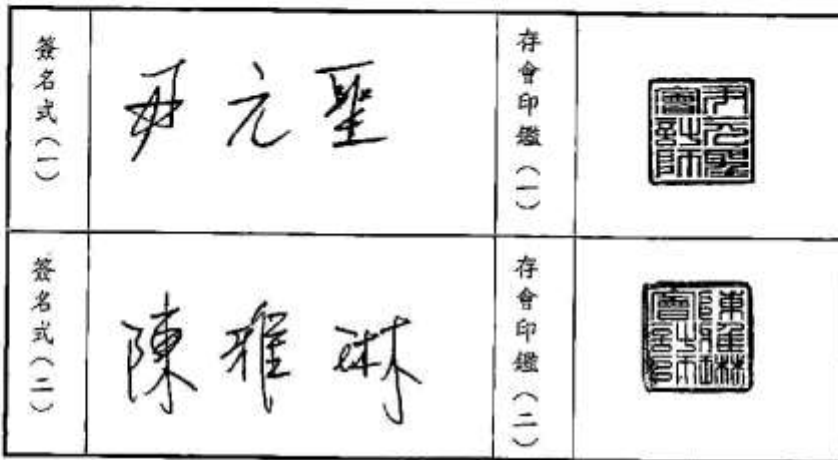 簽名式(一)
尹元聖
存會印鑑(一)
尹元聖
會計師
簽名式(二)
陳雅琳
存會印鑑(二)
陳雅琳
會計師